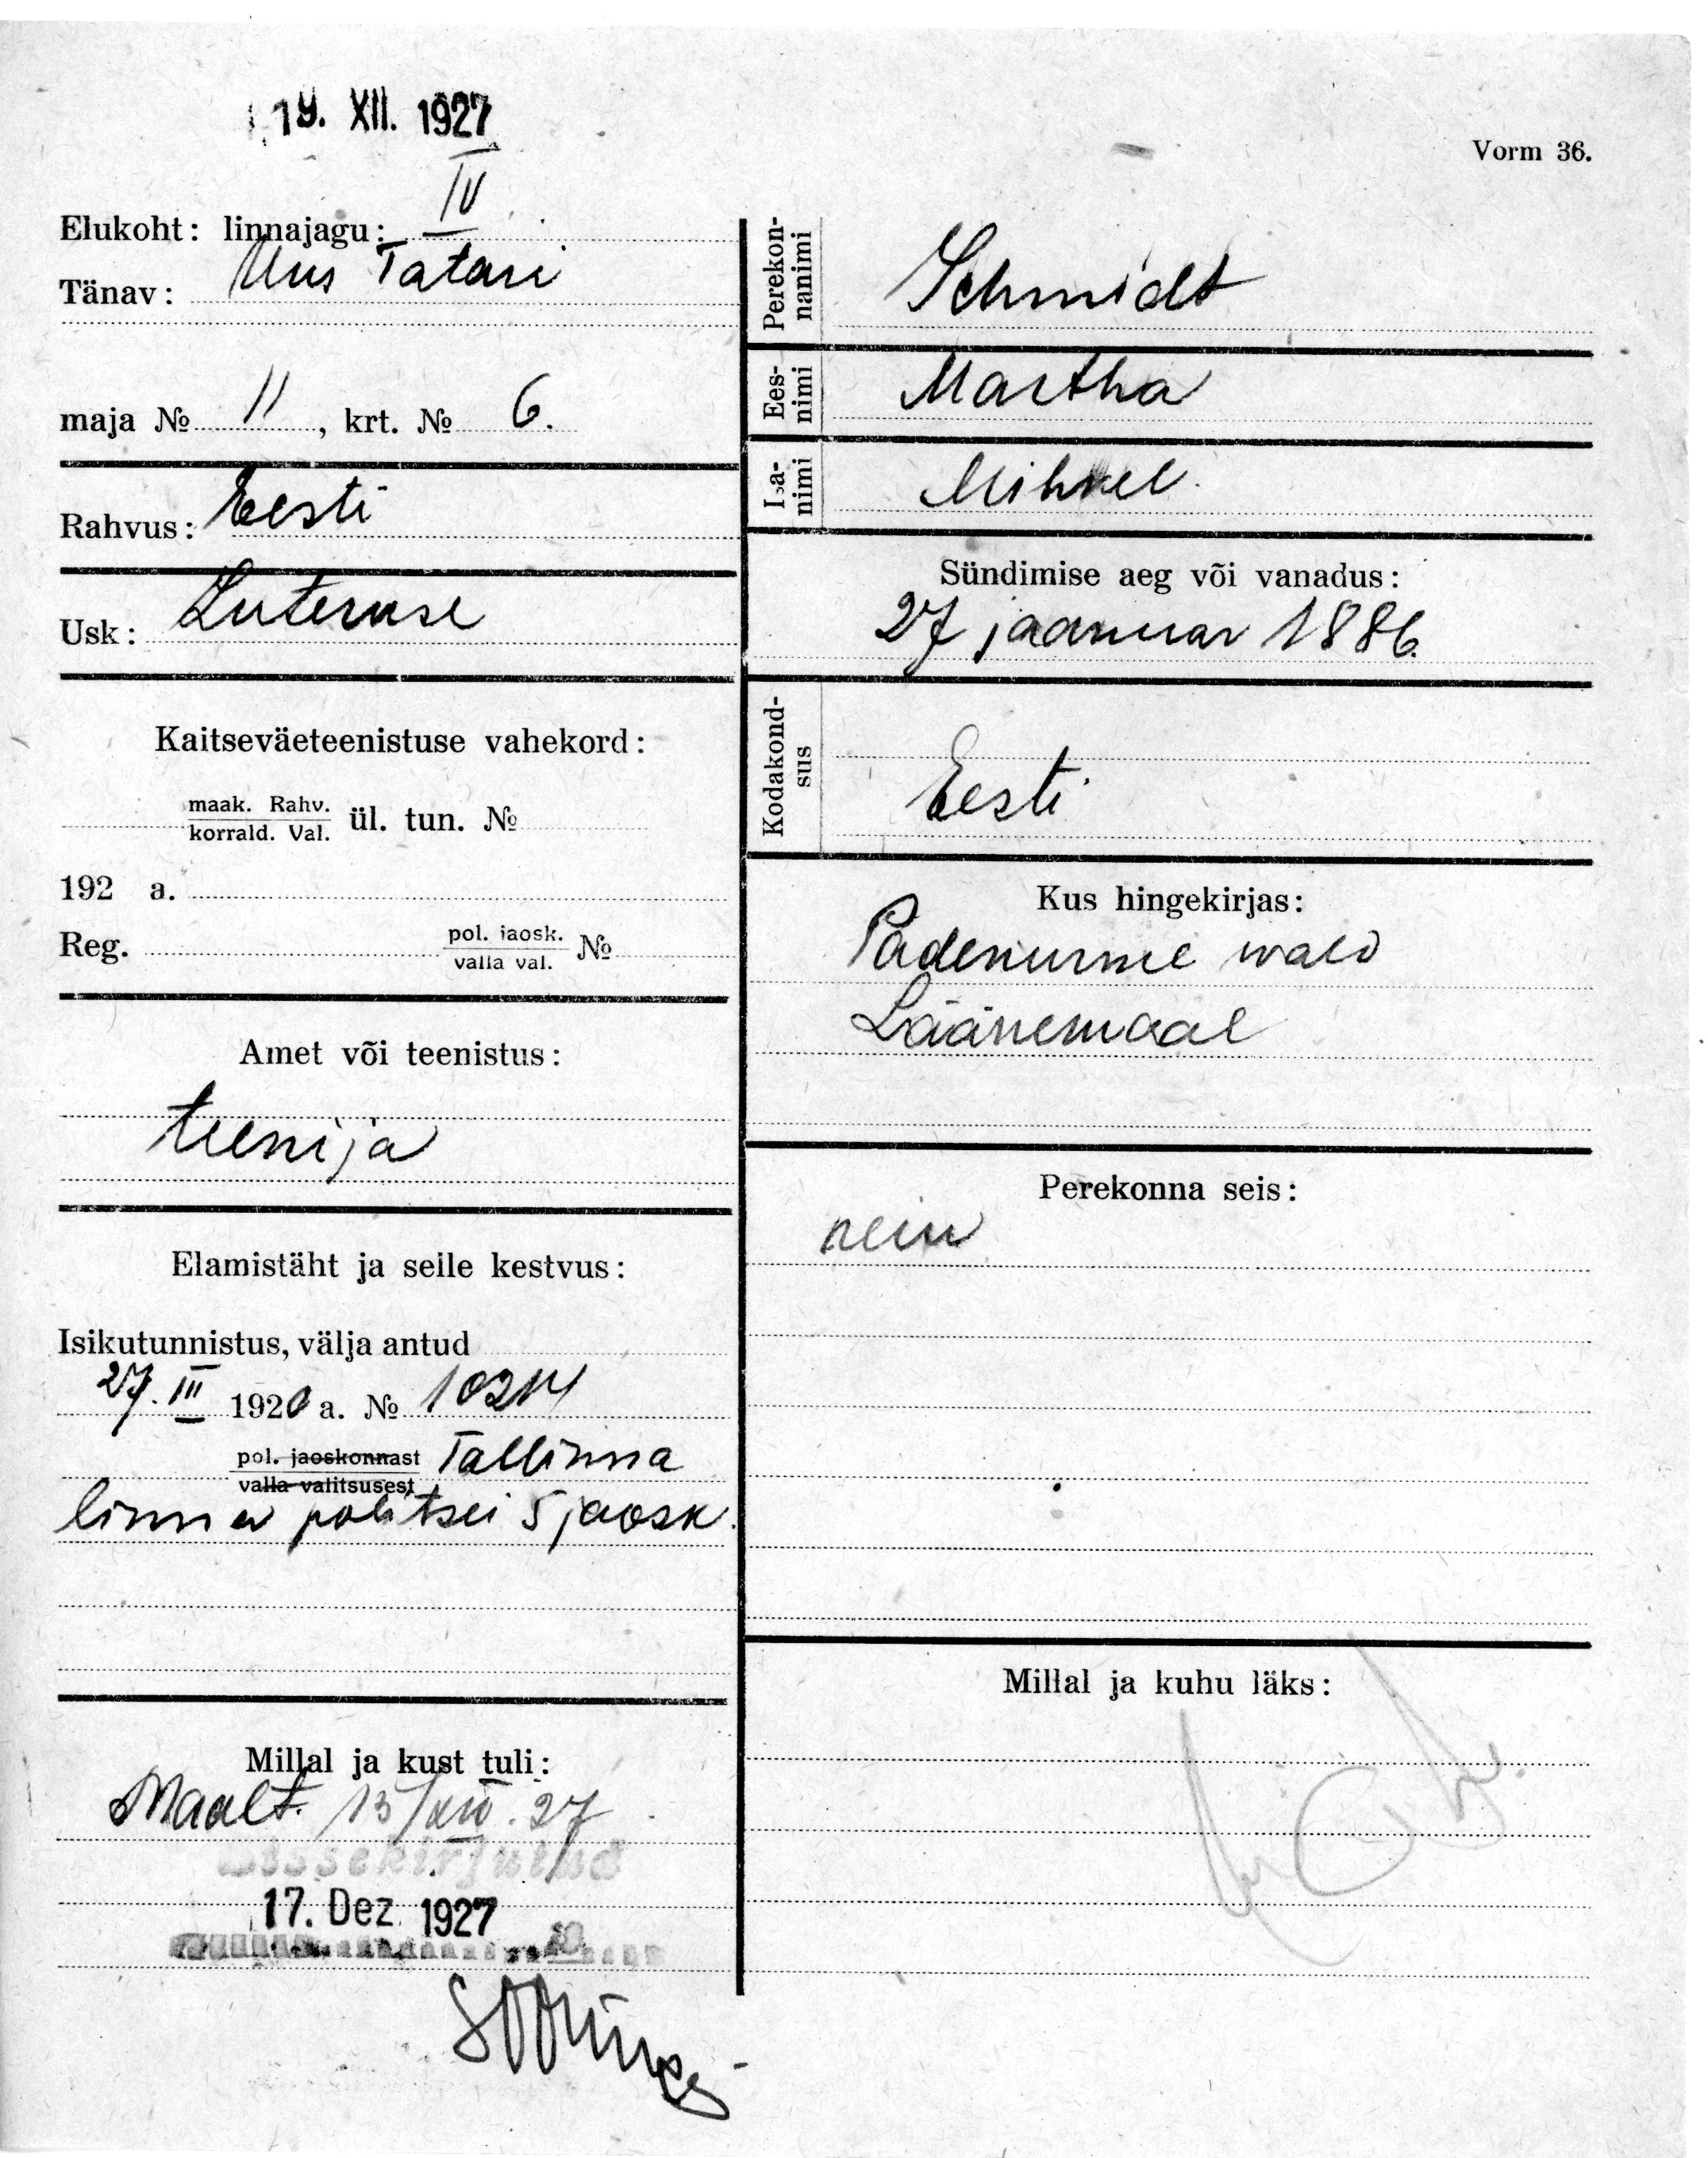 19. XII. 1927
Vorm 36.
Elukoht: linnajagu: IV
Tänav: Uus Tatari
maja № 11, krt. № 6.
Rahvus: Eesti
Usk: Luteruse
Kaitseväeteenistuse vahekord:
maak. Rahv.
korrald. Val. ül. tun. №
192 a.
Reg. pol. jaosk. №
valla val.
Amet või teenistus:
teenija
Elamistäht ja selle kestvus:
Isikutunnistus, välja antud
27. III 1920 a. № 10214
pol. jaoskonnast Tallinna
valla valitsusest
linna politsei 5 jaosk.
Millal ja kust tuli:
Maalt. 15/XII. 27
Sissekirjutud
17. Dez. 1927
Perekon-
nanimi
Schmidt
Ees-
nimi
Martha
Isa-
nimi
Mihkel.
Sündimise aeg või vanadus:
27 jaanuar 1886.
Kodakond-
sus
Eesti
Kus hingekirjas:
Padenurme wald
Läänemaal
Perekonna seis:
Millal ja kuhu läks: